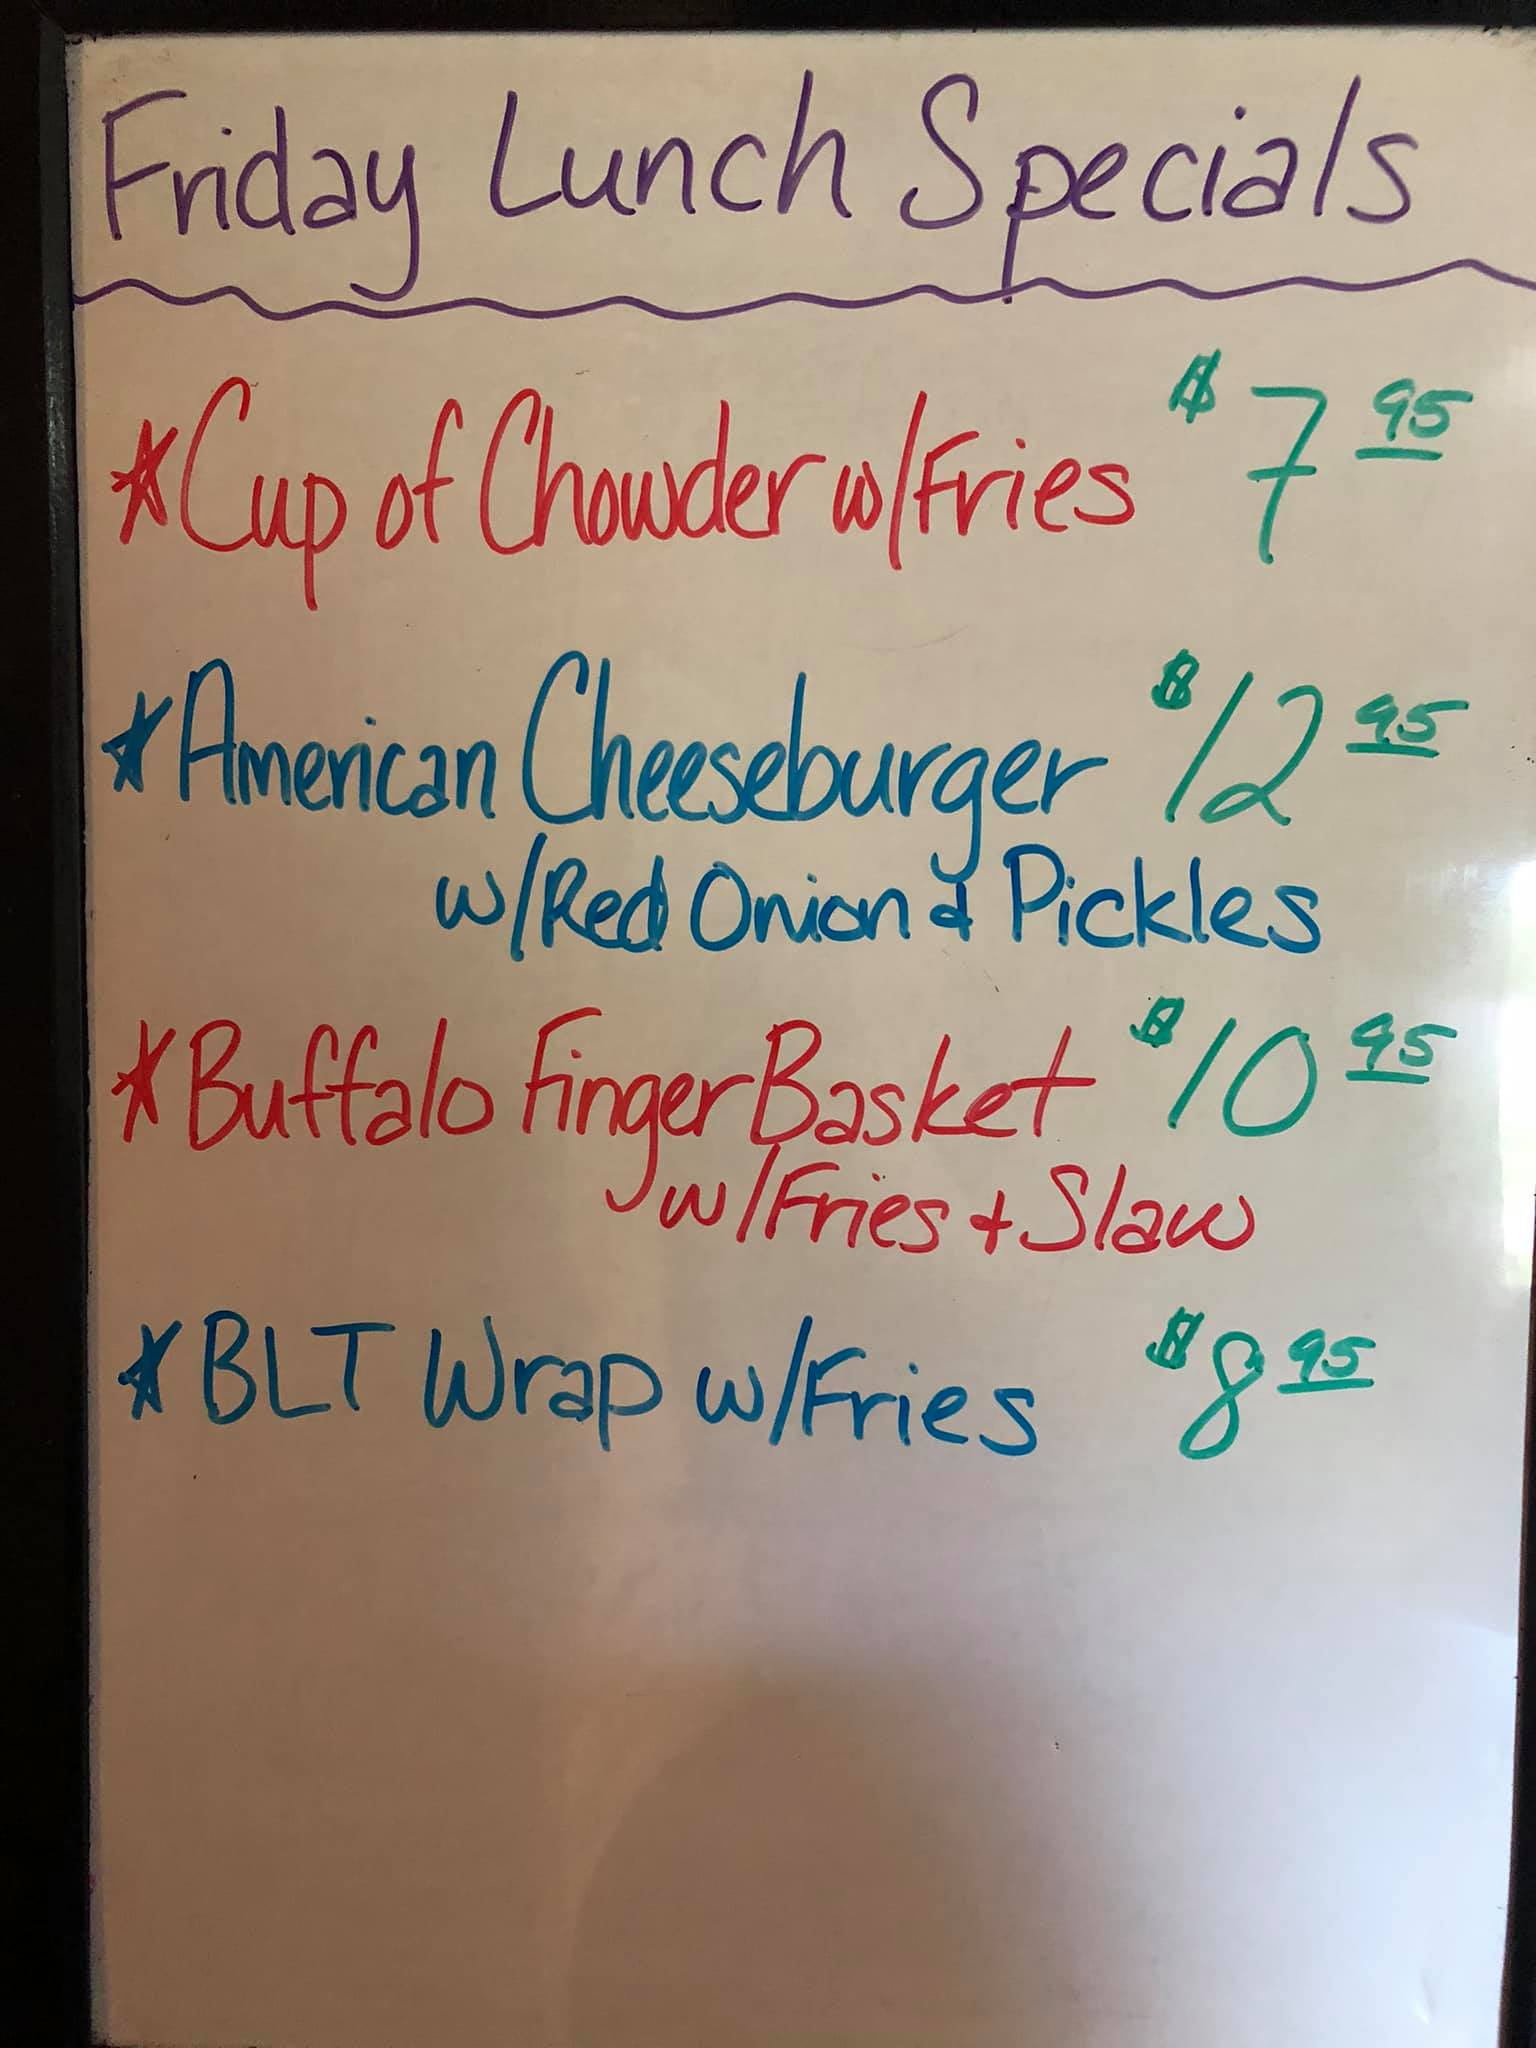 Friday Lunch Specials
*Cup of Chowder w/Fries $7.95
*American Cheeseburger $12.95
w/Red Onion & Pickles
*Buffalo Finger Basket $10.95
w/Fries & Slaw
*BLT Wrap w/Fries $8.95